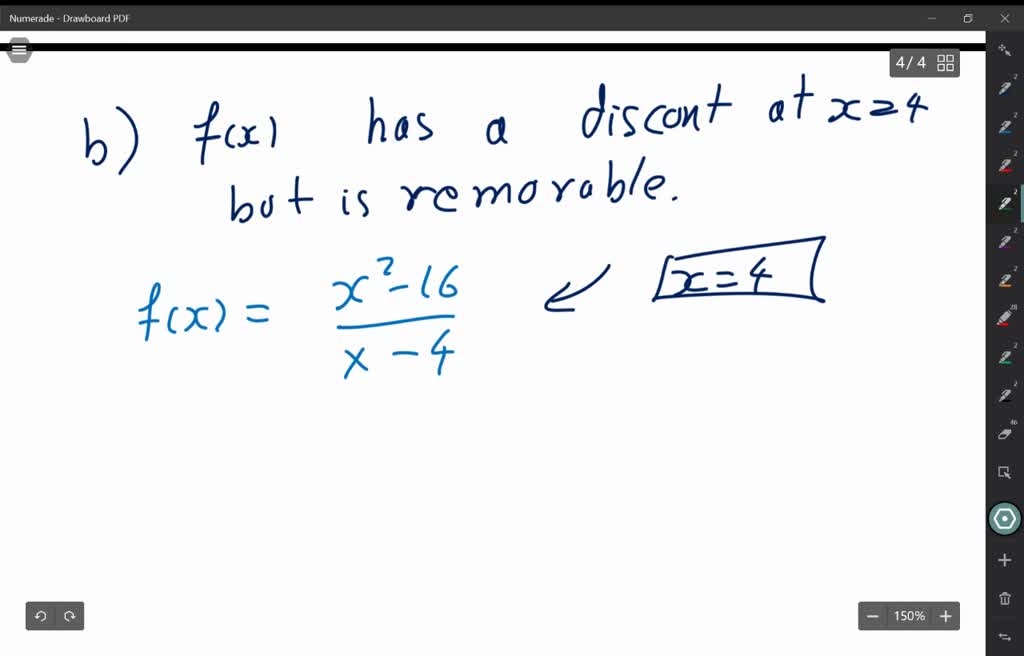 Numerade - Drawboard PDF
4 / 4
b) f(x) has a discont at x=4
but is removable.
f(x) = x²-16 / x - 4
x = 4
150%